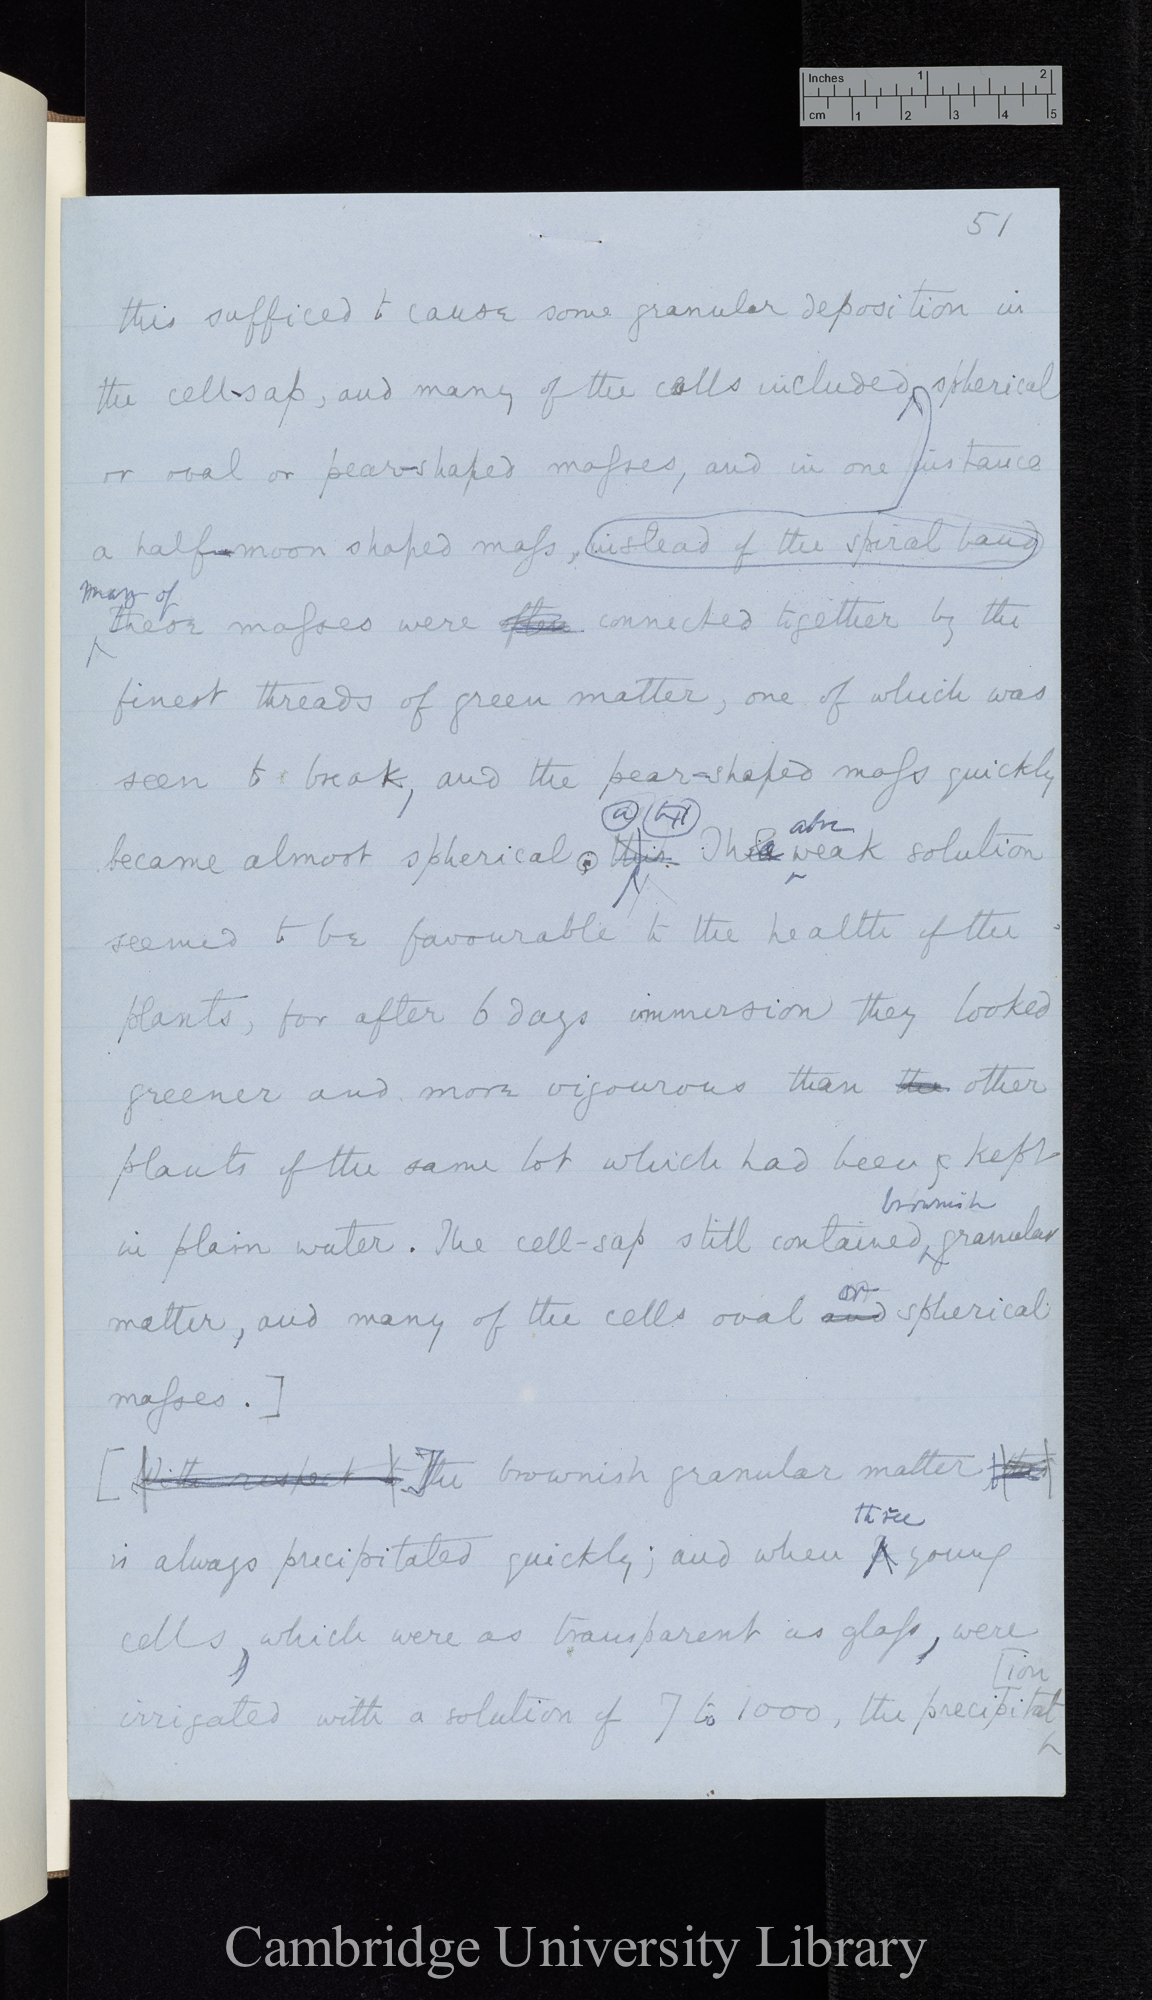 Inches 1 2
cm 1 2 3 4 5
51
this sufficed to cause some granular deposition in
the cell-sap, and many of the cells included, spherical
or oval or pear-shaped masses, and in one instance
a half-moon shaped mass, instead of the spiral band
many of
these masses were often connected together by the
finest threads of green matter, one of which was
seen to break, and the pear-shaped mass quickly
a
above
became almost spherical. this. The weak solution
seemed to be favourable to the health of the
plants, for after 6 days immersion they looked
greener and more vigourous than the other
plants of the same lot which had been kept
brownish
in plain water. The cell-sap still contained granular
or
matter, and many of the cells oval and spherical
masses.]
[With respect to] The brownish granular matter this
three
is always precipitated quickly; and when young
cells, which were as transparent as glass, were
[ion
irrigated with a solution of 7 to 1000, the precipitat
Cambridge University Library